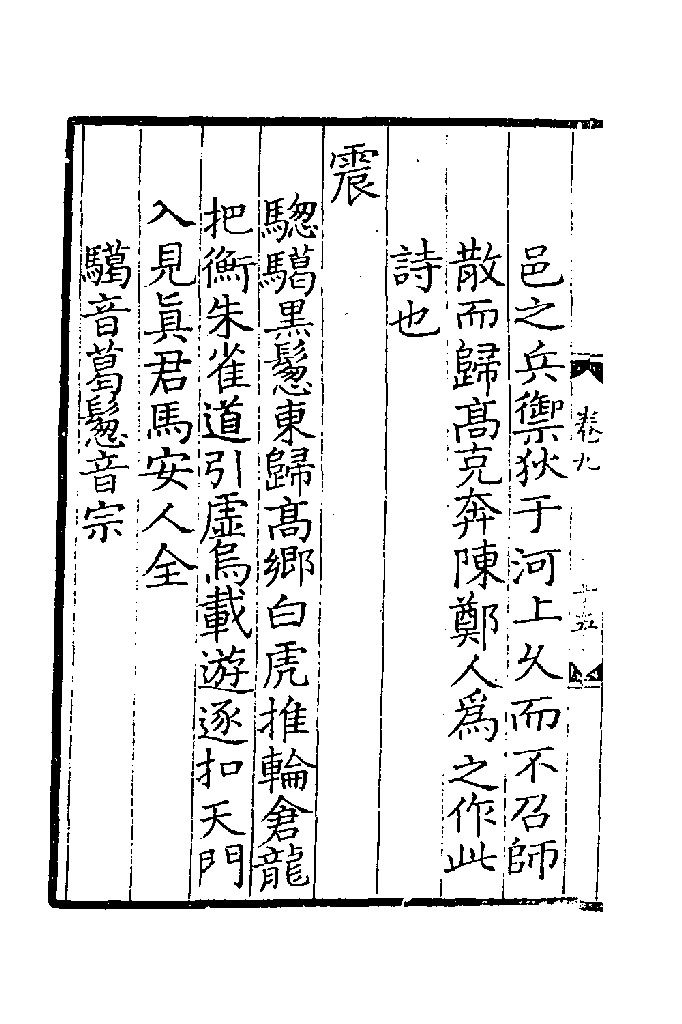 卷九
十五
邑之兵禦狄于河上久而不召師
散而歸高克奔陳鄭人為之作此
詩也
震
騘驨黒鬉東歸髙鄉白虎推輪倉龍
把衡朱雀道引虛烏載遊逐扣天門
入見真君馬安人全
音葛鬉音宗